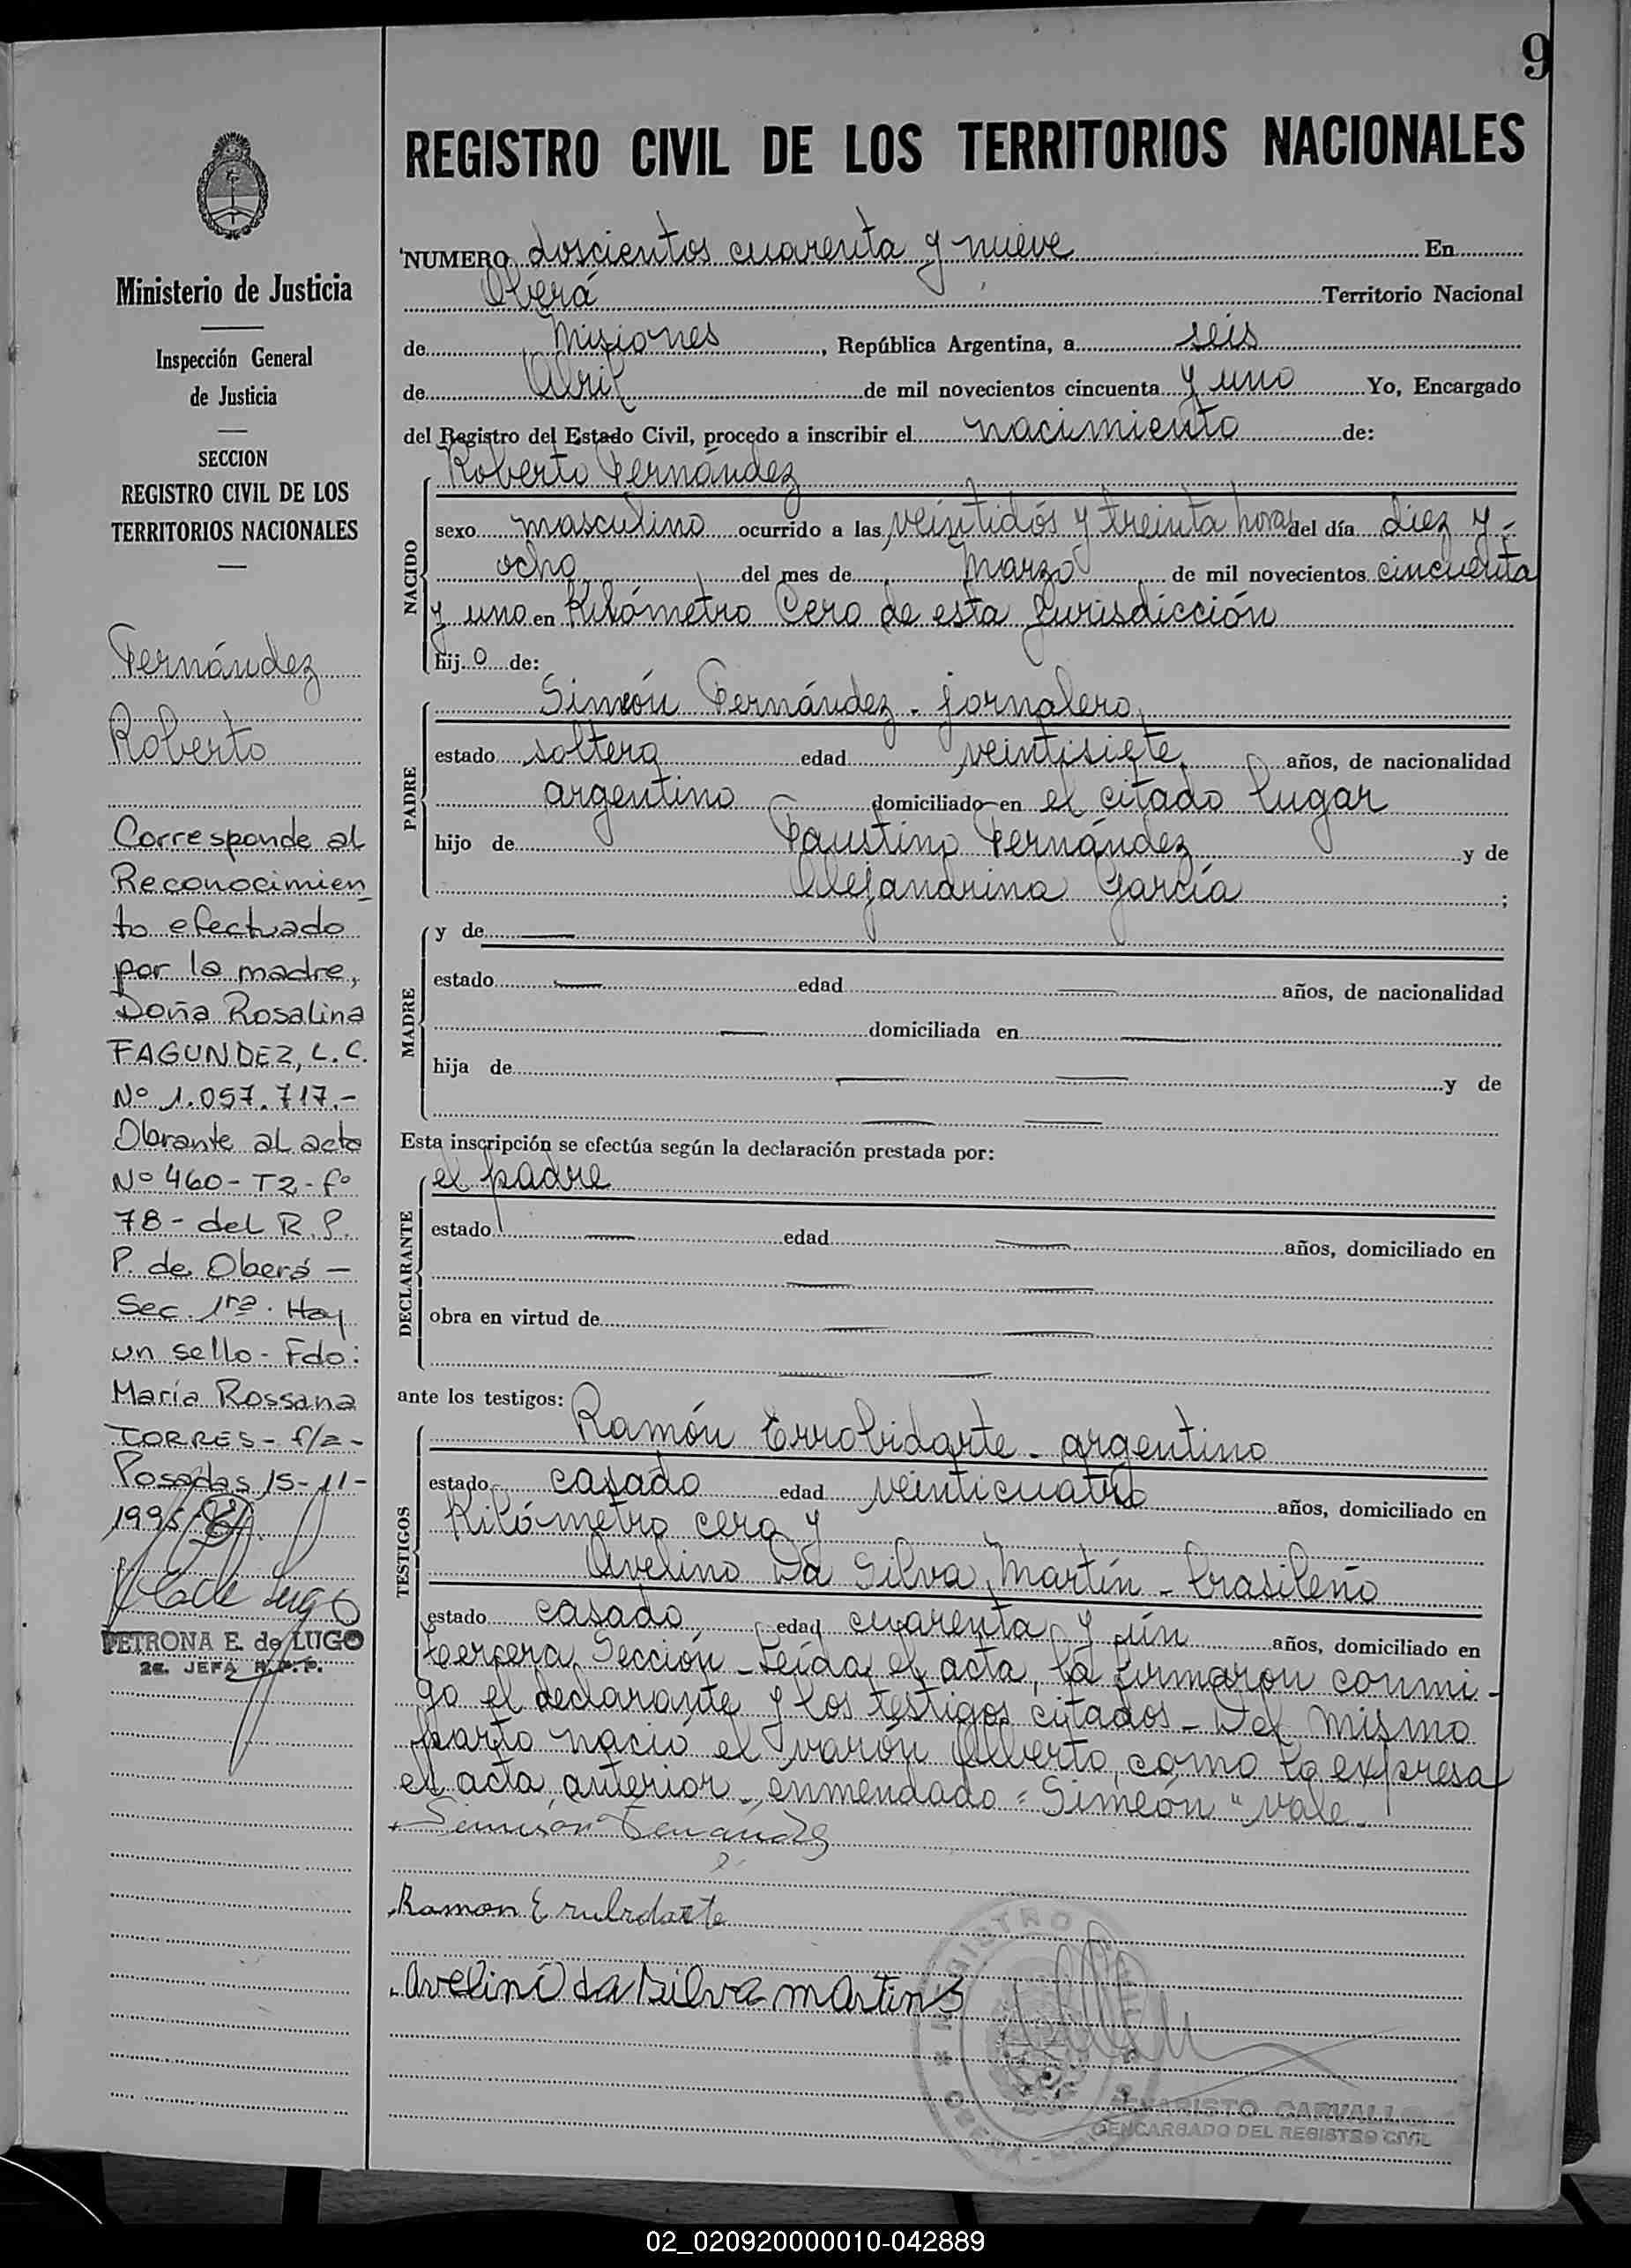 9
REGISTRO CIVIL DE LOS TERRITORIOS NACIONALES
Ministerio de Justicia
Inspección General
de Justicia
SECCION
REGISTRO CIVIL DE LOS
TERRITORIOS NACIONALES
Fernández
Roberto
Corresponde al
Reconocimien
to efectuado
por la madre,
Doña Rosalina
FAGUNDEZ, L.C.
Nº 1.057.717.-
Obrante al acta
Nº 460 - T2 - fº
78 - del R.P.
P. de Oberá -
Sec. 1ra. Hay
un sello - Fdo:
María Rossana
TORRES - f/a -
Posadas 15-11-
1995
PETRONA E. de LUGO
2a. JEFA R.P.P.
NUMERO doscientos cuarenta y nueve En
Oberá Territorio Nacional
de Misiones, República Argentina, a seis
de Abril de mil novecientos cincuenta y uno Yo, Encargado
del Registro del Estado Civil, procedo a inscribir el nacimiento de:
Roberto Fernández
NACIDO
sexo masculino ocurrido a las veintidós y treinta horas del día diez y
ocho del mes de Marzo de mil novecientos cincuenta
y uno en Kilómetro Cero de esta Jurisdicción
hij o de:
PADRE
Simeón Fernández - jornalero
estado soltero edad veintisiete años, de nacionalidad
argentino domiciliado en el citado lugar
hijo de Faustino Fernández y de
Alejandrina García ;
MADRE
y de
estado edad años, de nacionalidad
domiciliada en
hija de y de
Esta inscripción se efectúa según la declaración prestada por:
DECLARANTE
el padre
estado edad años, domiciliado en
obra en virtud de
ante los testigos:
TESTIGOS
Ramón Errobidarte - argentino
estado casado edad veinticuatro años, domiciliado en
Kilómetro cero y
Avelino Da Silva Martín - brasileño
estado casado edad cuarenta y ún años, domiciliado en
tercera Sección - Leída el acta, la firmaron conmi-
go el declarante y los testigos citados - Del mismo
parto nació el varón Alberto, como lo expresa
el acta anterior - enmendado = "Simeón" vale.
Ramon
Avelino da Silva martins
REGISTRO
EVARISTO CARVALLO
ENCARGADO DEL REGISTRO CIVIL
02_020920000010-042889